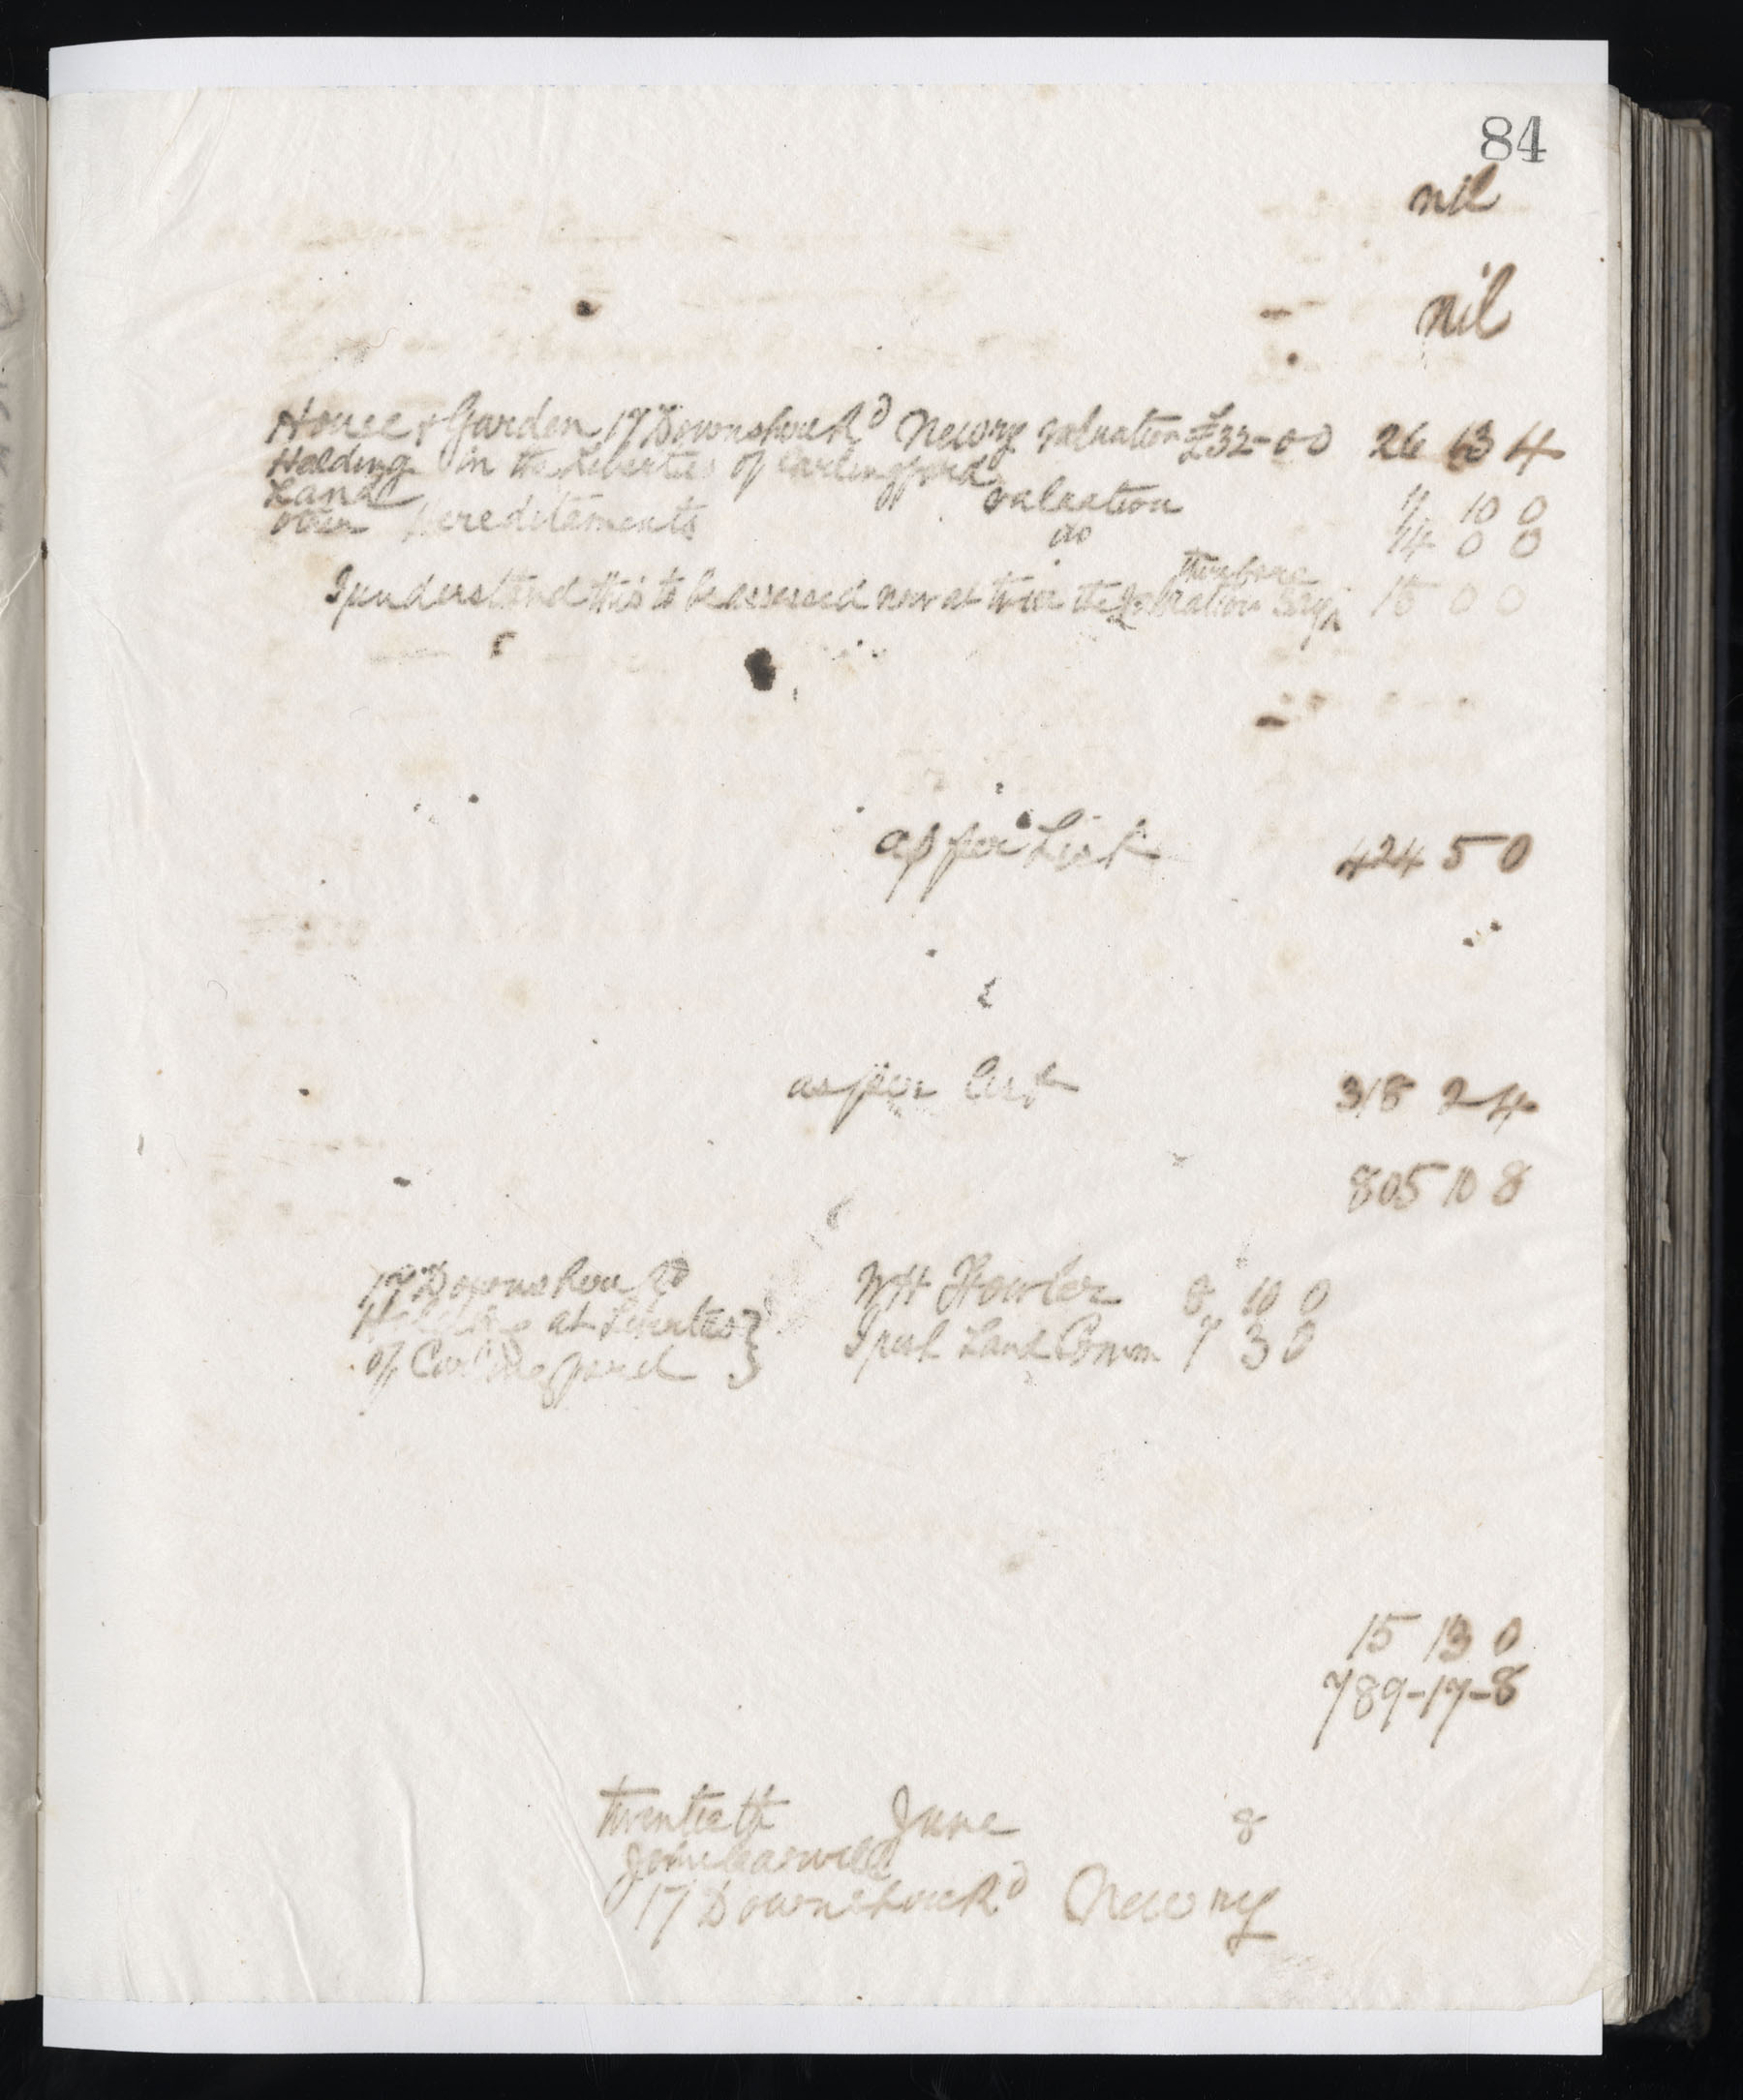 84
nil
nil
House & Garden 17 Downshire Rd Newry valuation £32-0-0 26 13 4
Holding in the Liberties of Carlingford
Land valuation 11 10 0
other hereditements do 14 0 0
therefore
I understand this to be assessed now at twice the Valuation Say 15 0 0
as per List 424 5 0
as per list 318 2 4
805 10 8
17 Downshire Rd WH Fowler 8 10 0
Holding at Liberties } Irish Land Comm 7 3 0
of Carlingford
15 13 0
789-17-8
twentieth June 8
John Caswell
17 Downshire Rd Newry